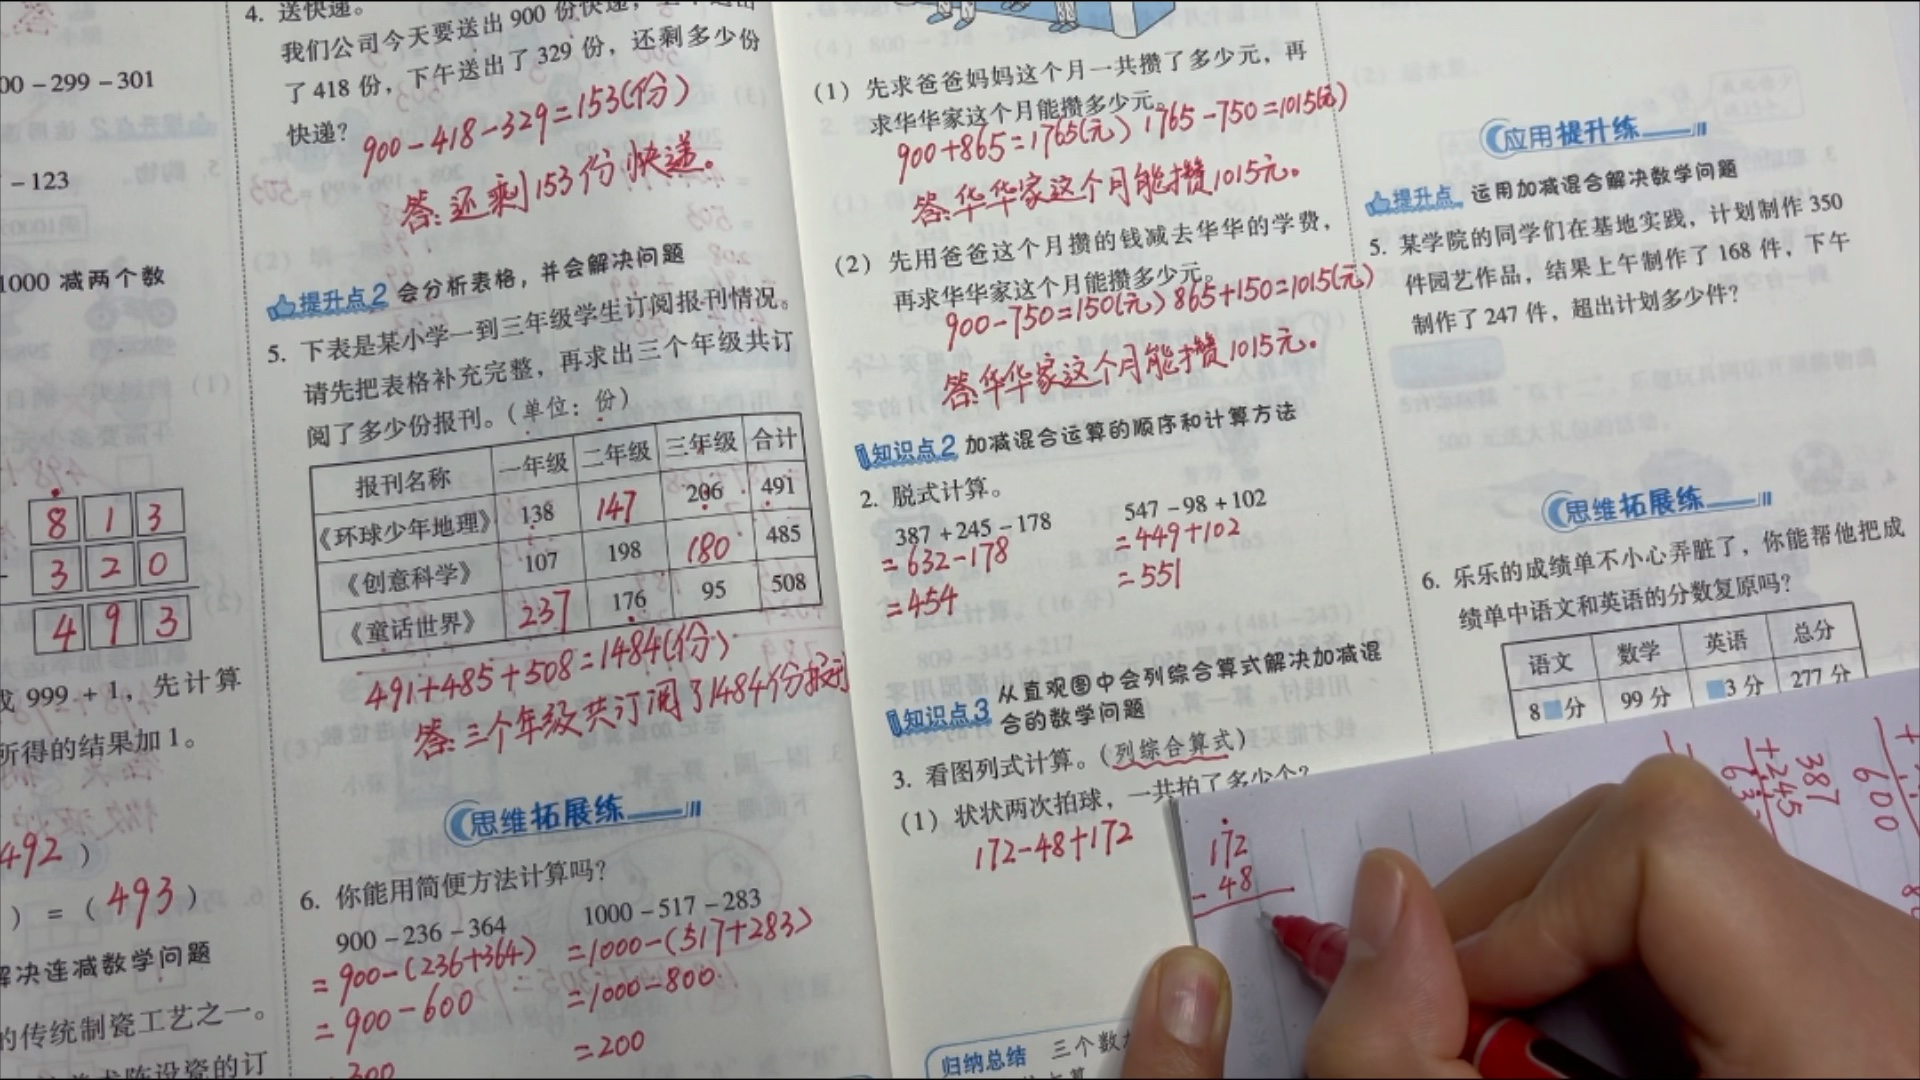 00-299-301
-123
1000 减两个数
8 1 3
3 2 0
4 9 3
成 999+1，先计算
所得的结果加1。
492 )
) = ( 493 )
解决连减数学问题
的传统制瓷工艺之一。
4. 送快递。
我们公司今天要送出900份快递，
了418份，下午送出了329份，还剩多少份
快递？
900-418-329=153(份)
答:还剩153份快递。
提升点2 会分析表格，并会解决问题
5. 下表是某小学一到三年级学生订阅报刊情况。
请先把表格补充完整，再求出三个年级共订
阅了多少份报刊。（单位：份）
报刊名称 一年级 二年级 三年级 合计
《环球少年地理》 138 147 206 491
《创意科学》 107 198 180 485
《童话世界》 237 176 95 508
491+485+508=1484(份)
答:三个年级共订阅了1484份报刊
思维拓展练
6. 你能用简便方法计算吗？
900-236-364 1000-517-283
=900-(236+364) =1000-(517+283)
=900-600 =1000-800
=300 =200
(1) 先求爸爸妈妈这个月一共攒了多少元，再
求华华家这个月能攒多少元。
900+865=1765(元) 1765-750=1015(元)
答:华华家这个月能攒1015元。
(2) 先用爸爸这个月攒的钱减去华华的学费，
再求华华家这个月能攒多少元。
900-750=150(元) 865+150=1015(元)
答:华华家这个月能攒1015元。
知识点2 加减混合运算的顺序和计算方法
2. 脱式计算。
387+245-178 547-98+102
=632-178 =449+102
=454 =551
知识点3 从直观图中会列综合算式解决加减混
合的数学问题
3. 看图列式计算。（列综合算式）
(1) 状状两次拍球，一共拍了多少个？
172-48+172
归纳总结 三个数
应用提升练
提升点 运用加减混合解决数学问题
5. 某学院的同学们在基地实践，计划制作350
件园艺作品，结果上午制作了168件，下午
制作了247件，超出计划多少件？
思维拓展练
6. 乐乐的成绩单不小心弄脏了，你能帮他把成
绩单中语文和英语的分数复原吗？
语文 数学 英语 总分
8 分 99分 3分 277分
172
-48
387
+245
600